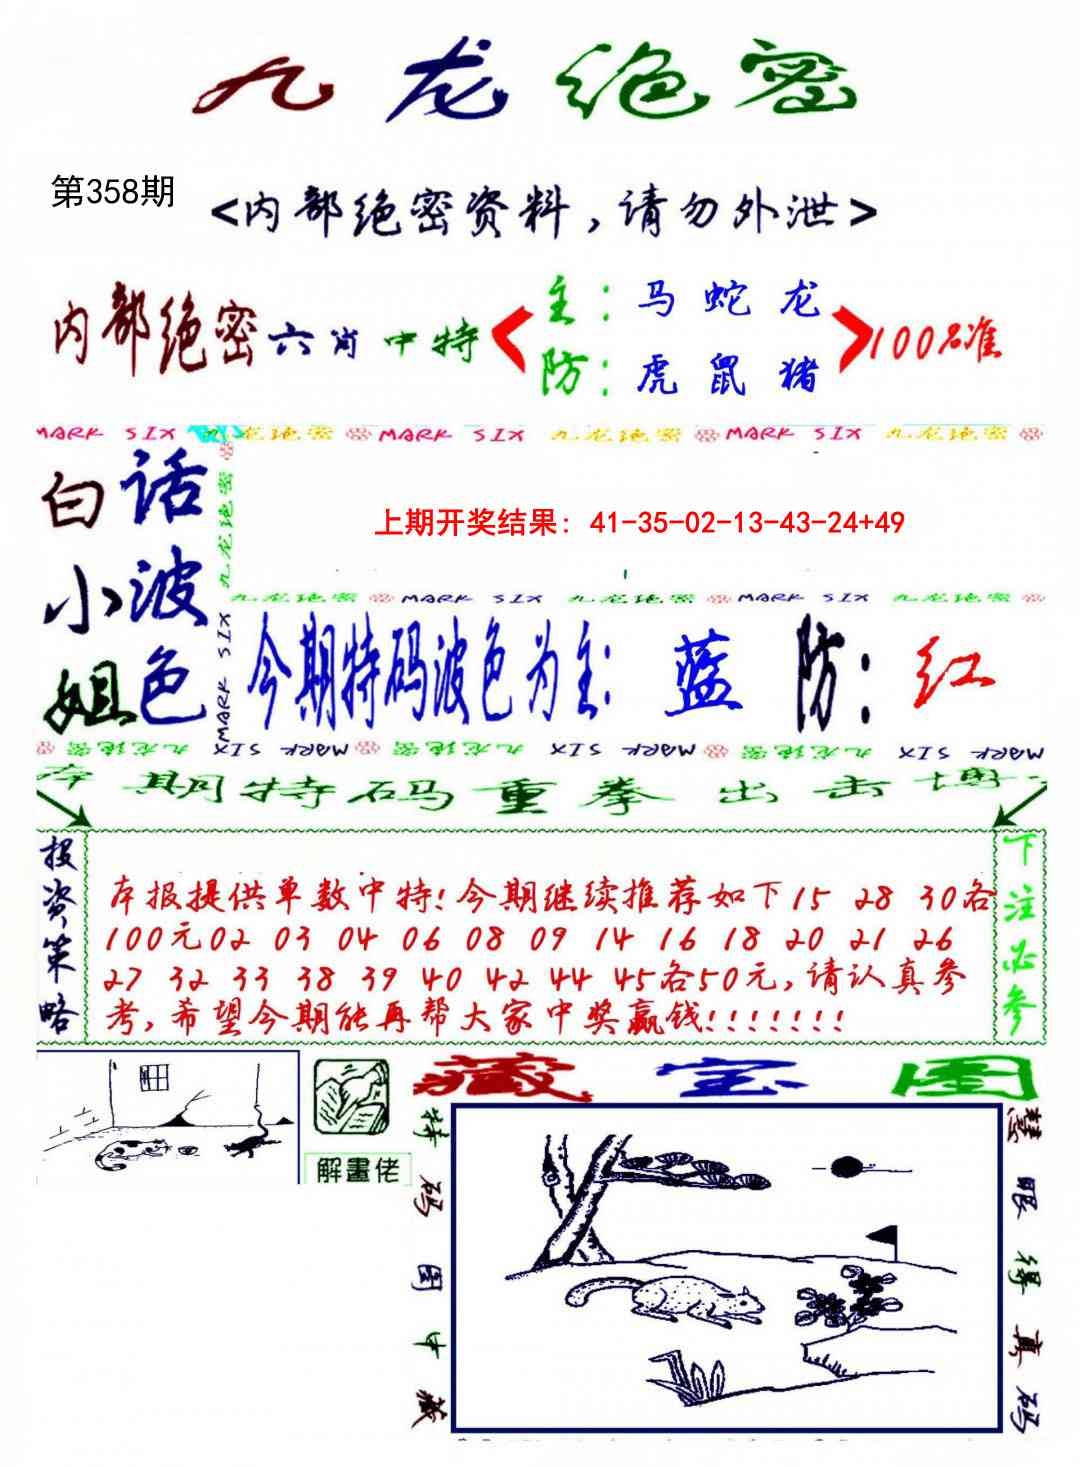 九龙绝密
第358期
<内部绝密资料,请勿外泄>
内部绝密六肖中特
主:马 蛇 龙
防:虎 鼠 猪
100%准
MARK SIX 九龙绝密 MARK SIX 九龙绝密 MARK SIX 九龙绝密
白小姐
话波色
九龙绝密
MARK SIX
上期开奖结果: 41-35-02-13-43-24+49
九龙绝密 MARK SIX 九龙绝密 MARK SIX 九龙绝密
今期特码波色为主:蓝 防:红
九龙绝密 MARK SIX 九龙绝密 MARK SIX 九龙绝密 MARK SIX
本期特码重拳出击博
投资策略
本报提供单数中特!今期继续推荐如下15 28 30各
100元02 03 04 06 08 09 14 16 18 20 21 26
27 32 33 38 39 40 42 44 45各50元,请认真参
考,希望今期能再帮大家中奖赢钱!!!!!!!
下注必参
解畫佬
藏宝图
特码图中藏
慧眼得真码